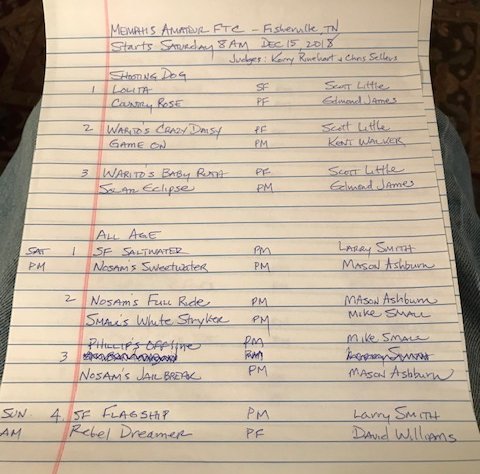 Memphis Amateur FTC - Fisherville, TN
Starts Saturday 8 AM Dec 15 2018
Judges: Kerry Rinehart & Chris Sellers
Shooting Dog
1 Lolita SF Scott Little
Country Rose PF Edmond James
2 Warito's Crazy Daisy PF Scott Little
Game On PM Kent Walker
3 Warito's Baby Ruth PF Scott Little
Solar Eclipse PM Edmond James
All Age
Sat 1 SF Saltwater PM Larry Smith
PM Nosam's Sweetwater PM Mason Ashburn
2 Nosam's Full Ride PM Mason Ashburn
Small's White Stryker PM Mike Small
Phillip's Off Line PM Mike Small
3
Nosam's Jailbreak PM Mason Ashburn
Sun 4 SF Flagship PM Larry Smith
AM Rebel Dreamer PF David Williams